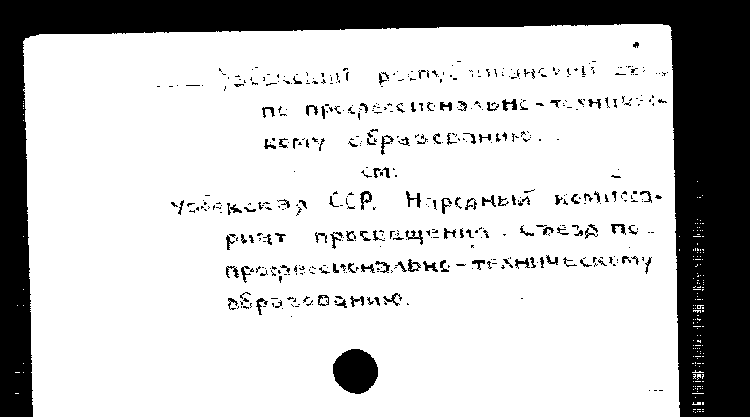 Узбекский республиканский съезд
по профессионально-техничес-
кому образованию.
см:
Узбекская ССР. Народный комисса-
риат просвещения. Съезд по
профессионально-техническому
образованию.